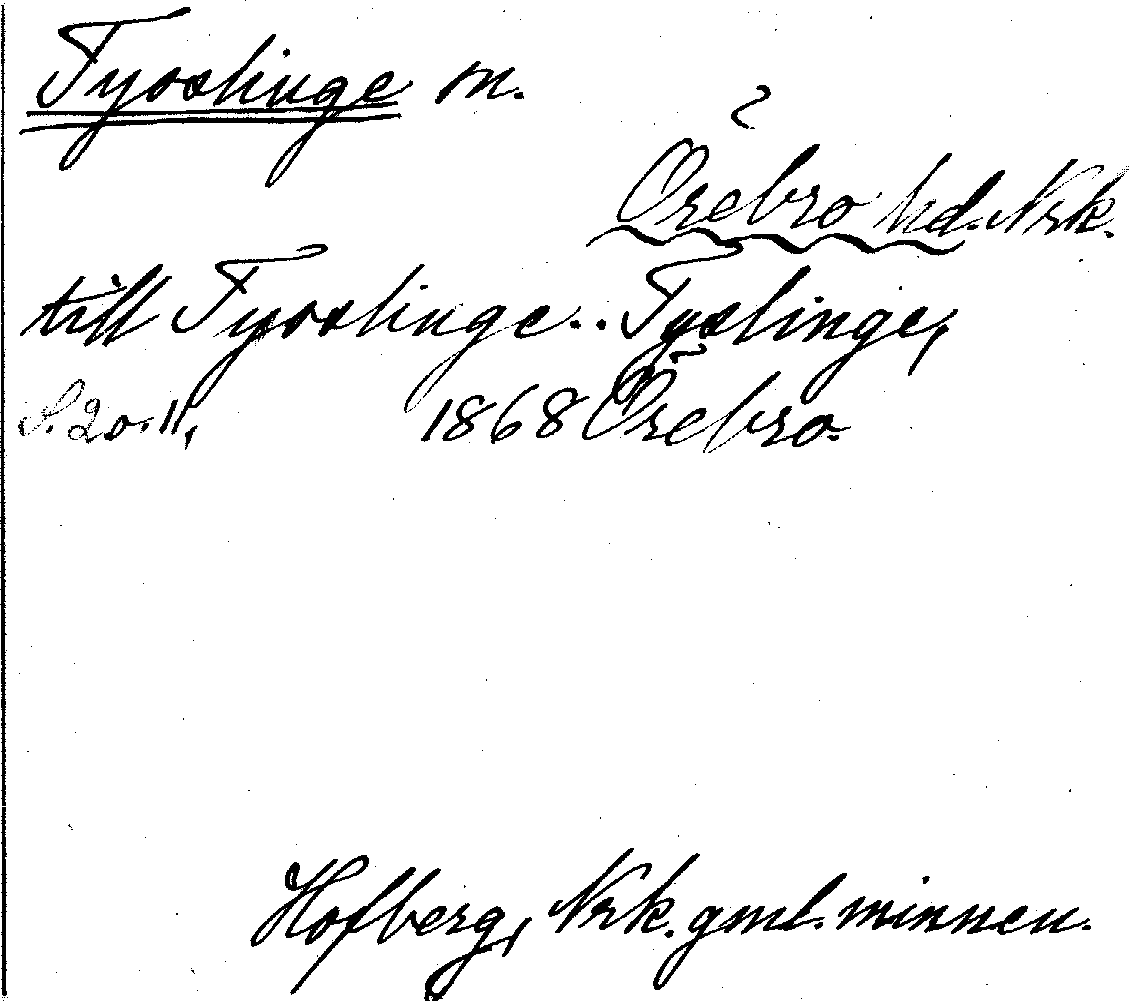 Tyrslinge sn.
Örebro hd. Nrk.
till Tyrslinge.. Tyslinge,
S. 20.11. 1868 Örebro.
Hofberg, Nrk. gml. minnen.